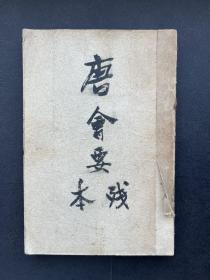 唐會要
残本